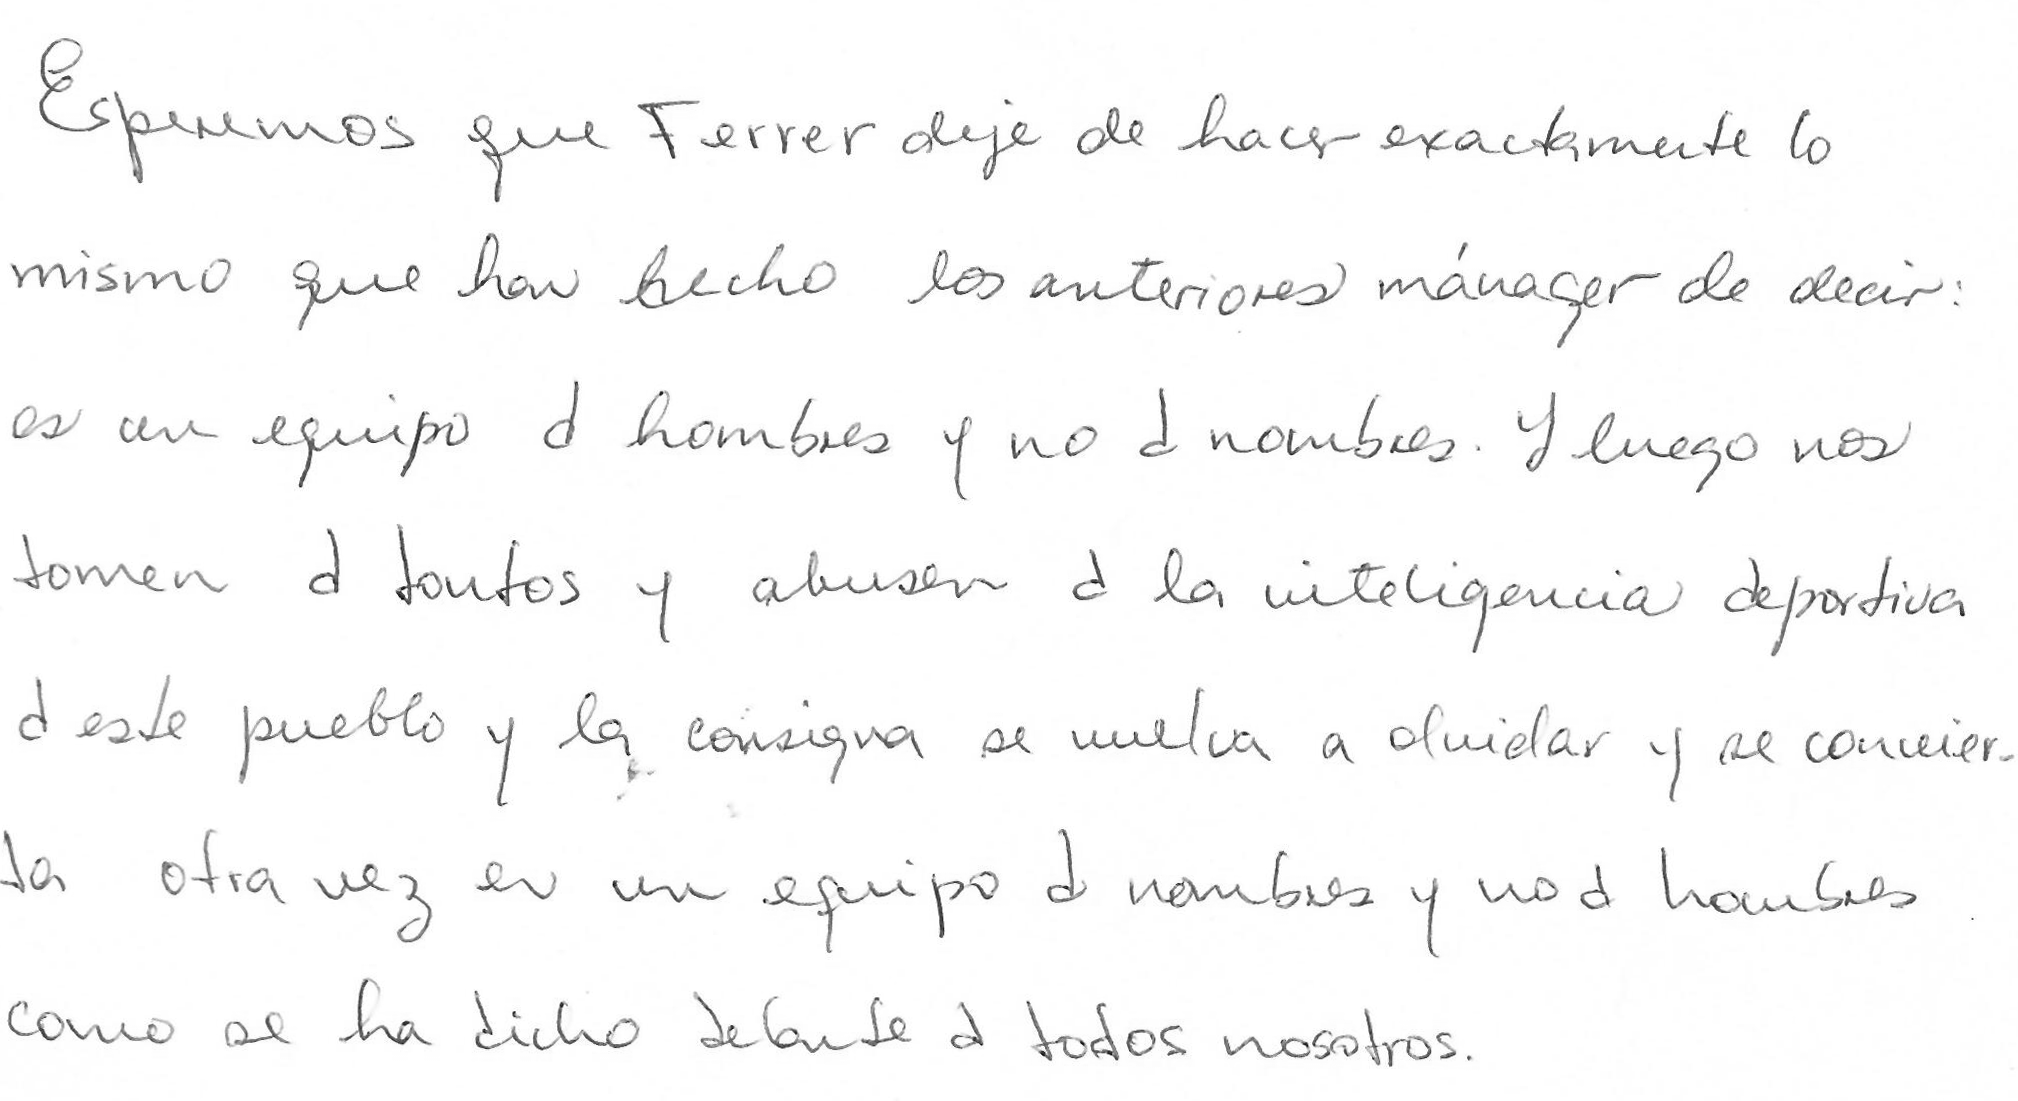 Esperemos que Ferrer deje de hacer exactamente lo
mismo que han hecho los anteriores mánager de decir:
es un equipo d hombres y no d nombres. Y luego nos
tomen d tontos y abusen d la inteligencia deportiva
d este pueblo y la consigna se vuelva a olvidar y se convier-
ta otra vez en un equipo d nombres y no d hombres
como se ha dicho delante d todos nosotros.